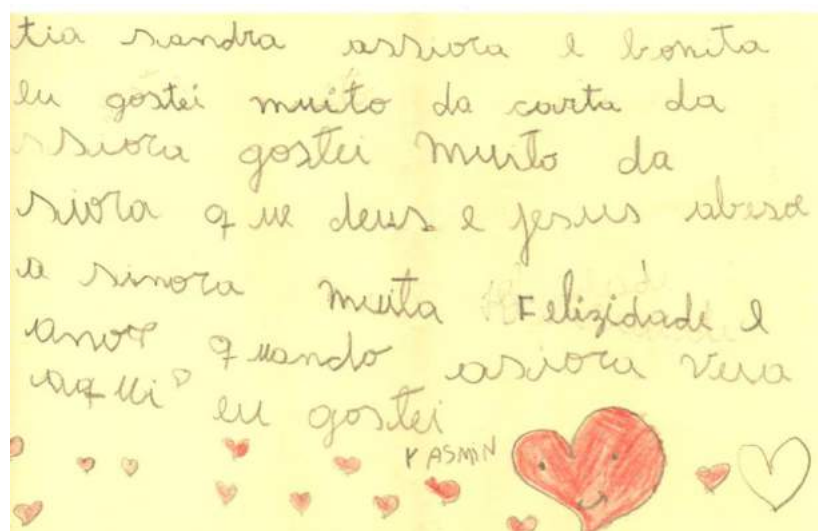 tia sandra assiora e bonita
eu gostei muito da carta da
ssiora gostei muito da
siora que deus e jesus abesoe
a sinora muita Felizidade e
amor quando asiora veia
aqui eu gostei
YASMIN